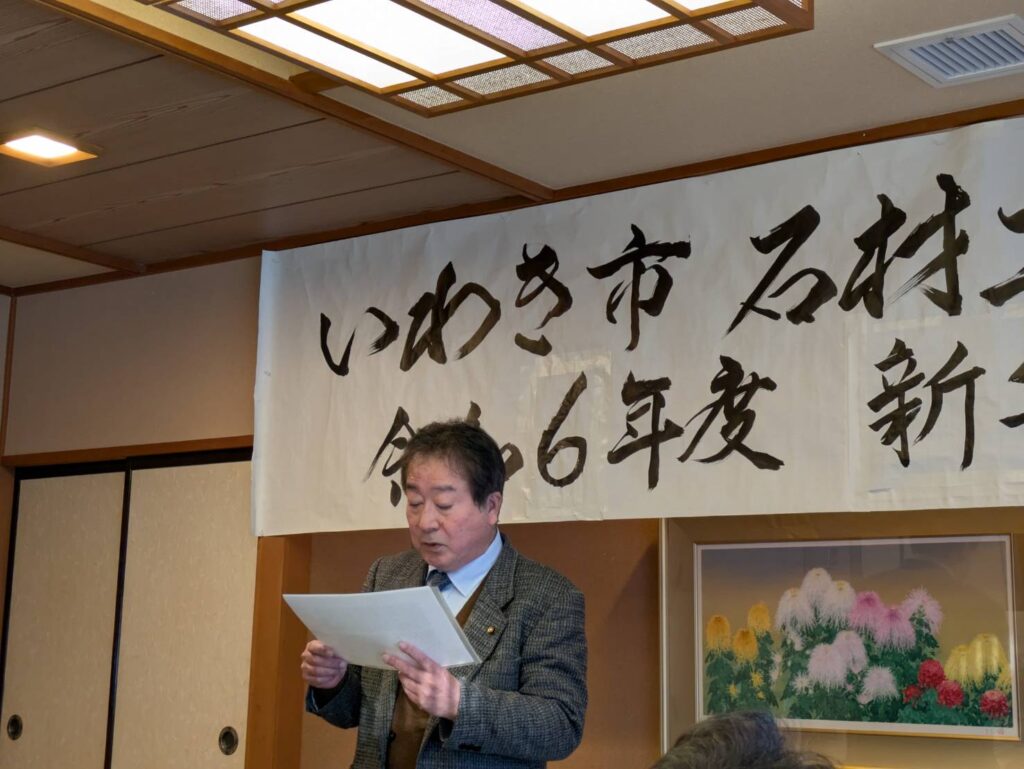 いわき市 石材
令和6年度 新